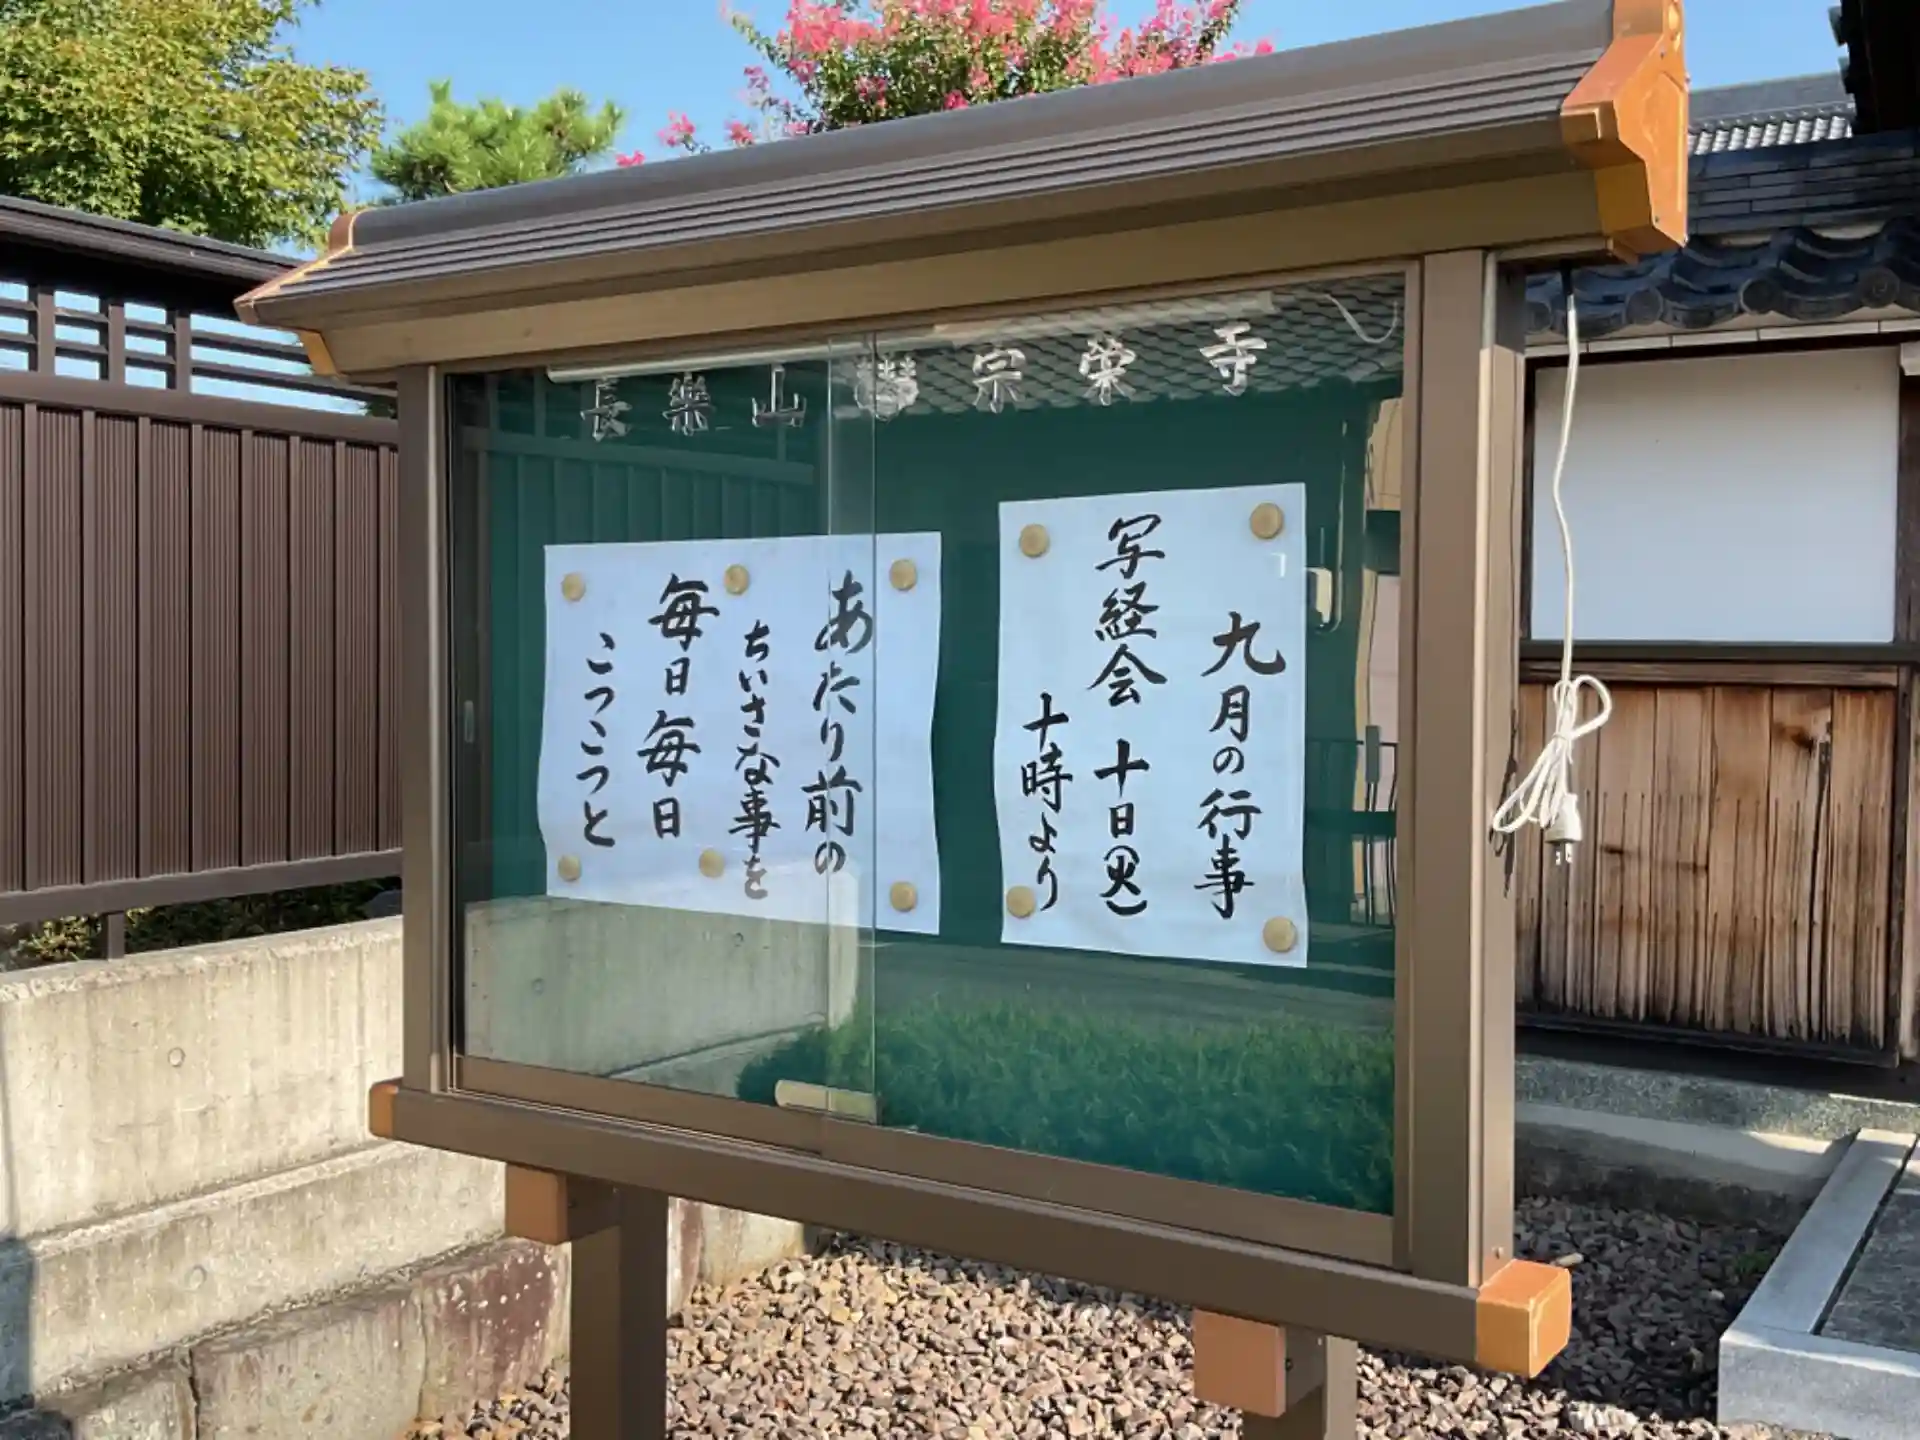 長樂山 宗栄寺
九月の行事
写経会 十日(火)
十時より
あたり前の
ちいさな事を
毎日毎日
こつこつと